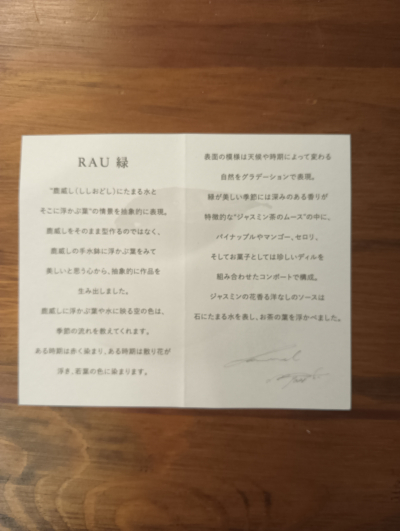 RAU 緑
"鹿威し（ししおどし）にたまる水と
そこに浮かぶ葉"の情景を抽象的に表現。
鹿威しをそのまま型作るのではなく、
鹿威しの手水鉢に浮かぶ葉をみて
美しいと思う心から、抽象的に作品を
生み出しました。
鹿威しに浮かぶ葉や水に映る空の色は、
季節の流れを教えてくれます。
ある時期は赤く染まり、ある時期は散り花が
浮き、若葉の色に染まります。
表面の模様は天候や時期によって変わる
自然をグラデーションで表現。
緑が美しい季節には深みのある香りが
特徴的な"ジャスミン茶のムース"の中に、
パイナップルやマンゴー、セロリ、
そしてお菓子としては珍しいディルを
組み合わせたコンポートで構成。
ジャスミンの花香る洋なしのソースは
石にたまる水を表し、お茶の葉を浮かべました。